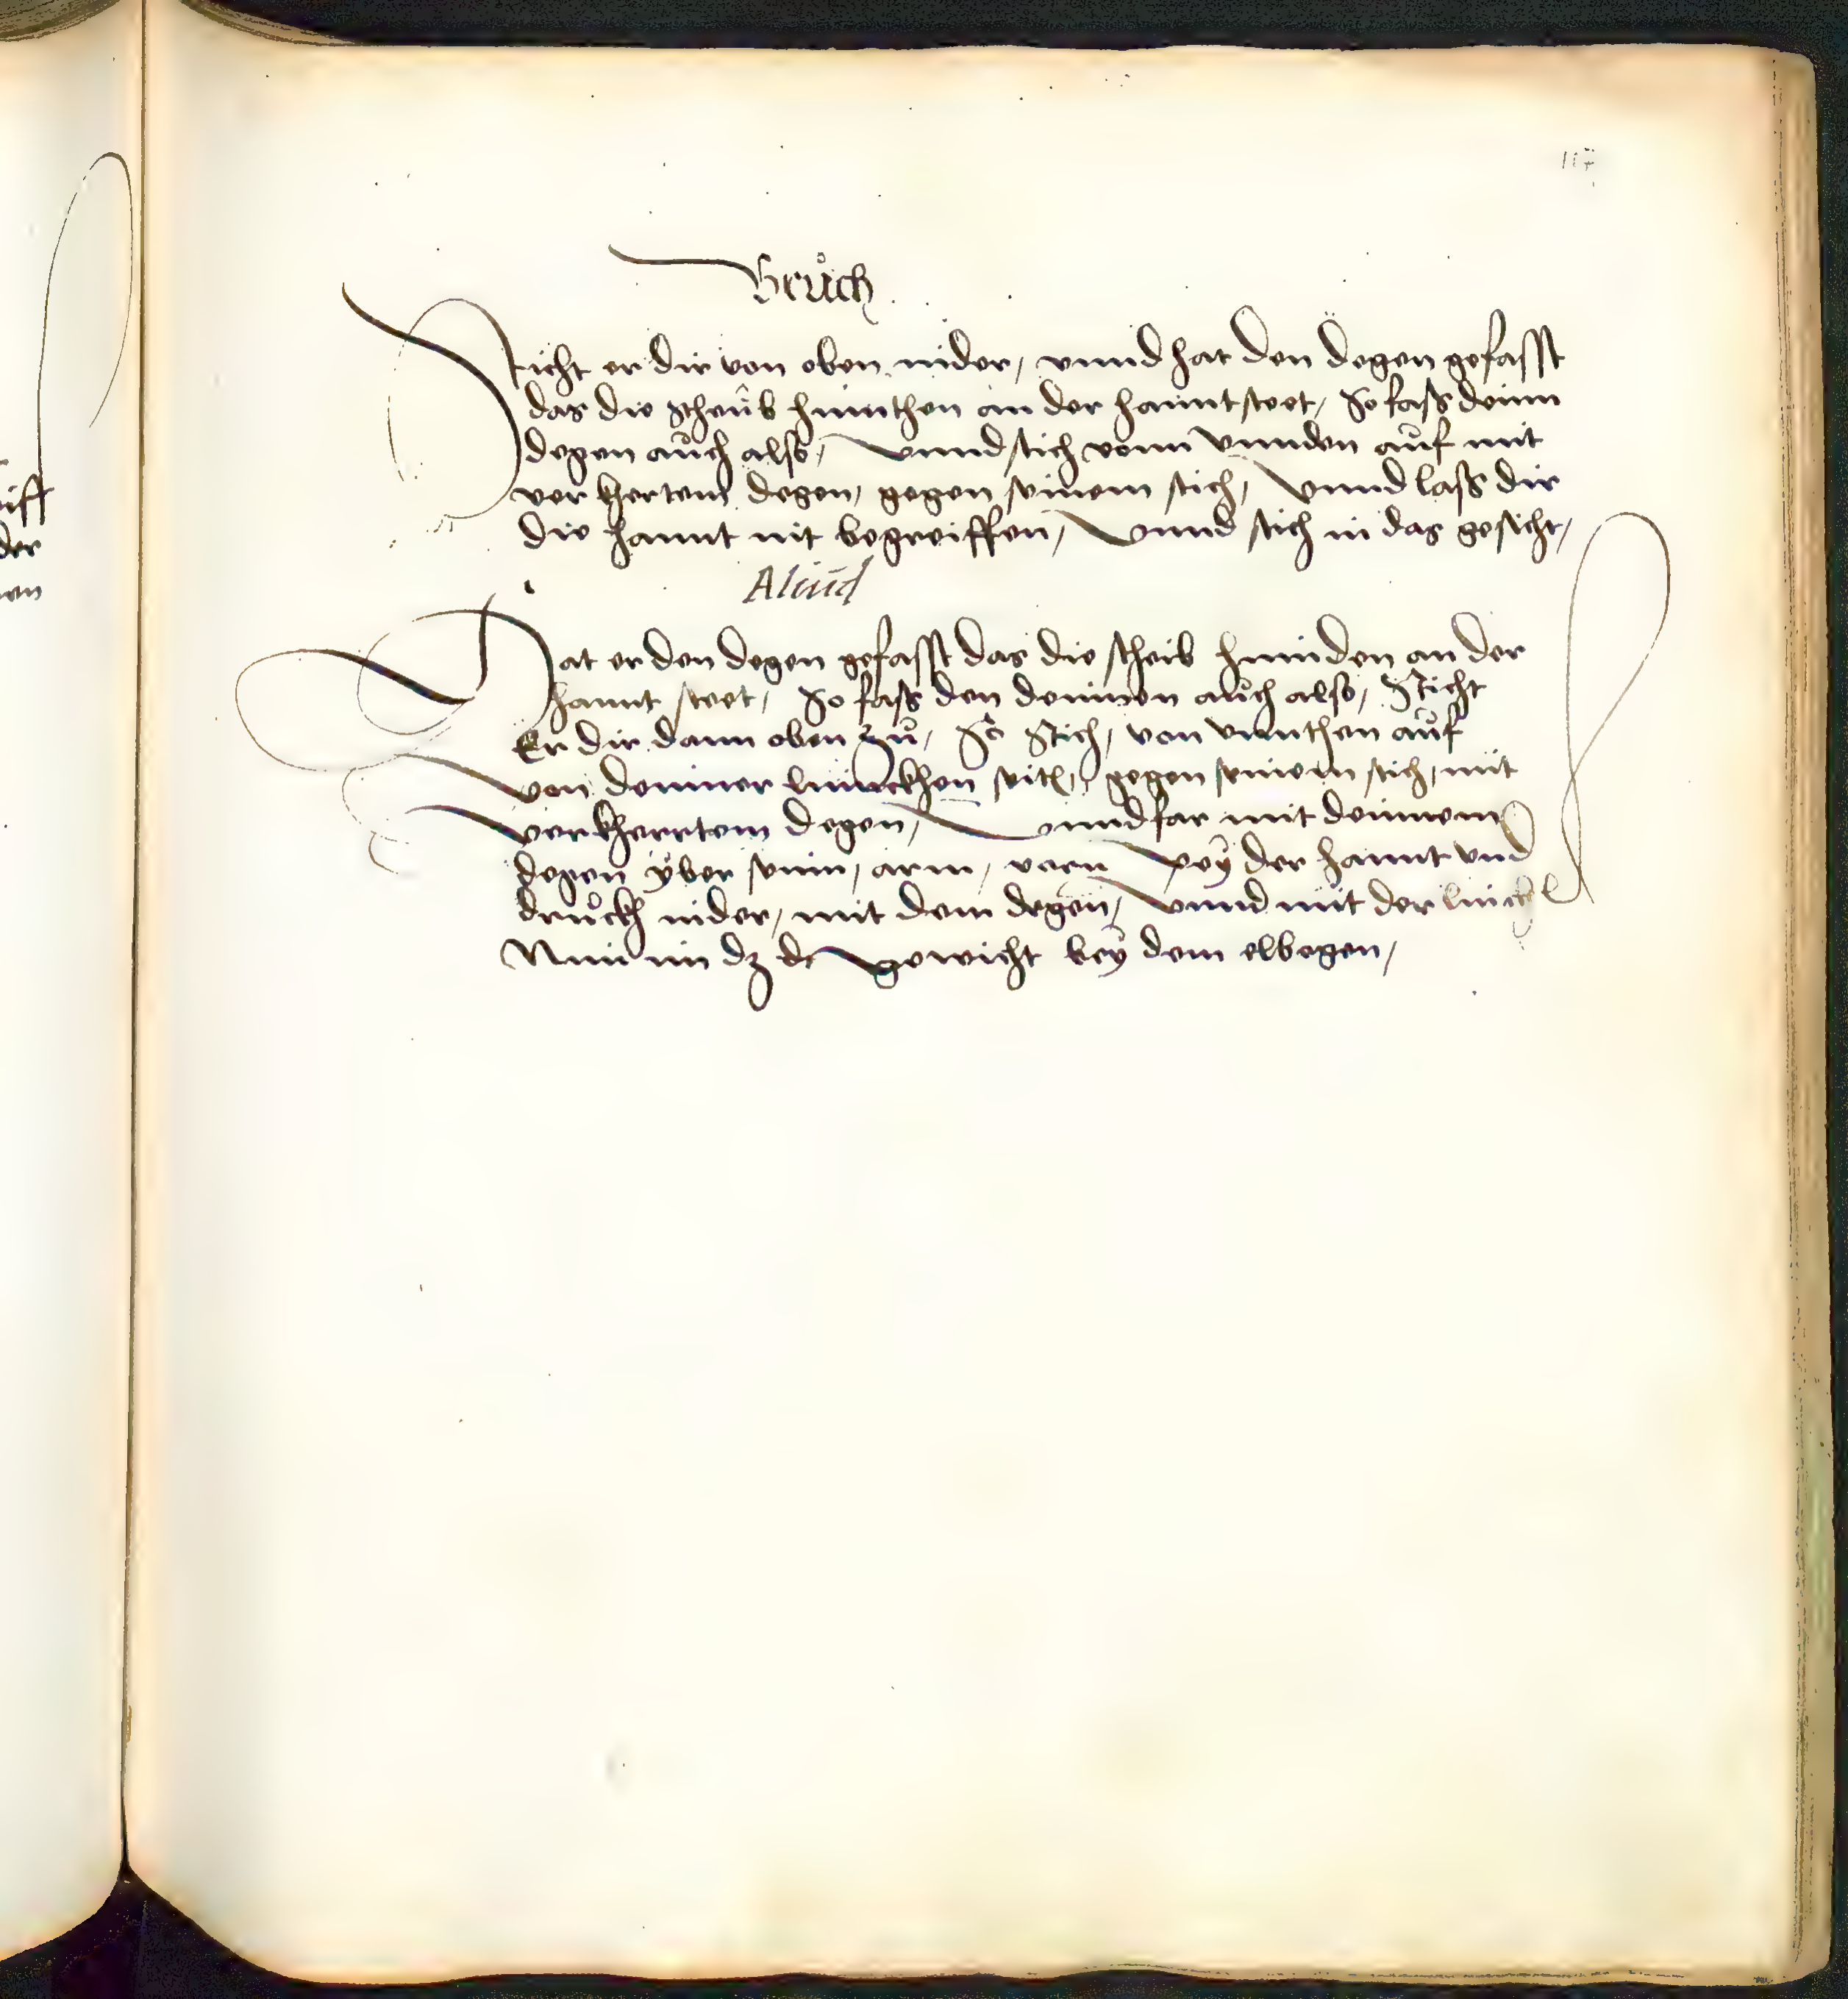 117
Brůch
Sticht er dir von oben nider, vnnd hat den degen gefasst
das die scheub hinnthen an der hannt steet, So fass deinn
degen auch also, vnnd stich vonn vnnden auf mit
verkhertem degen, gegen seinem stich, Vnnd lass dir
die hannt nit begreiffen, Vnnd stich in das gesicht,
Aliud
Hat er den degen gefasst das die scheib hinnden an der
hannt steet, So fass den deinnen auch also, Sticht
Er dir dann oben zů, So Stich, von vnnthen auf
von deinner linnckhen seitn, gegen seinem stich, mit
verkherrtem degen, vnnd far mit deinnem
degen yber seinn, arm, vorn pey der hannt vnd
druckh nider, mit dem degen, vnnd mit der linckn
Nim im dz gewicht bey dem elbogen,
iff
der
en